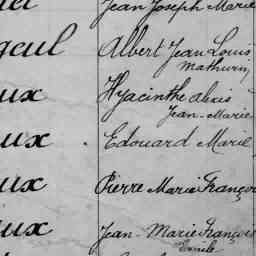 Jean Joseph Marie
geul Albert Jean Louis
Mathurin
ux Hyacinthe Alexis
Jean-Marie
ux Edouard Marie
ux Pierre Marie François
ux Jean-Marie François
Emile